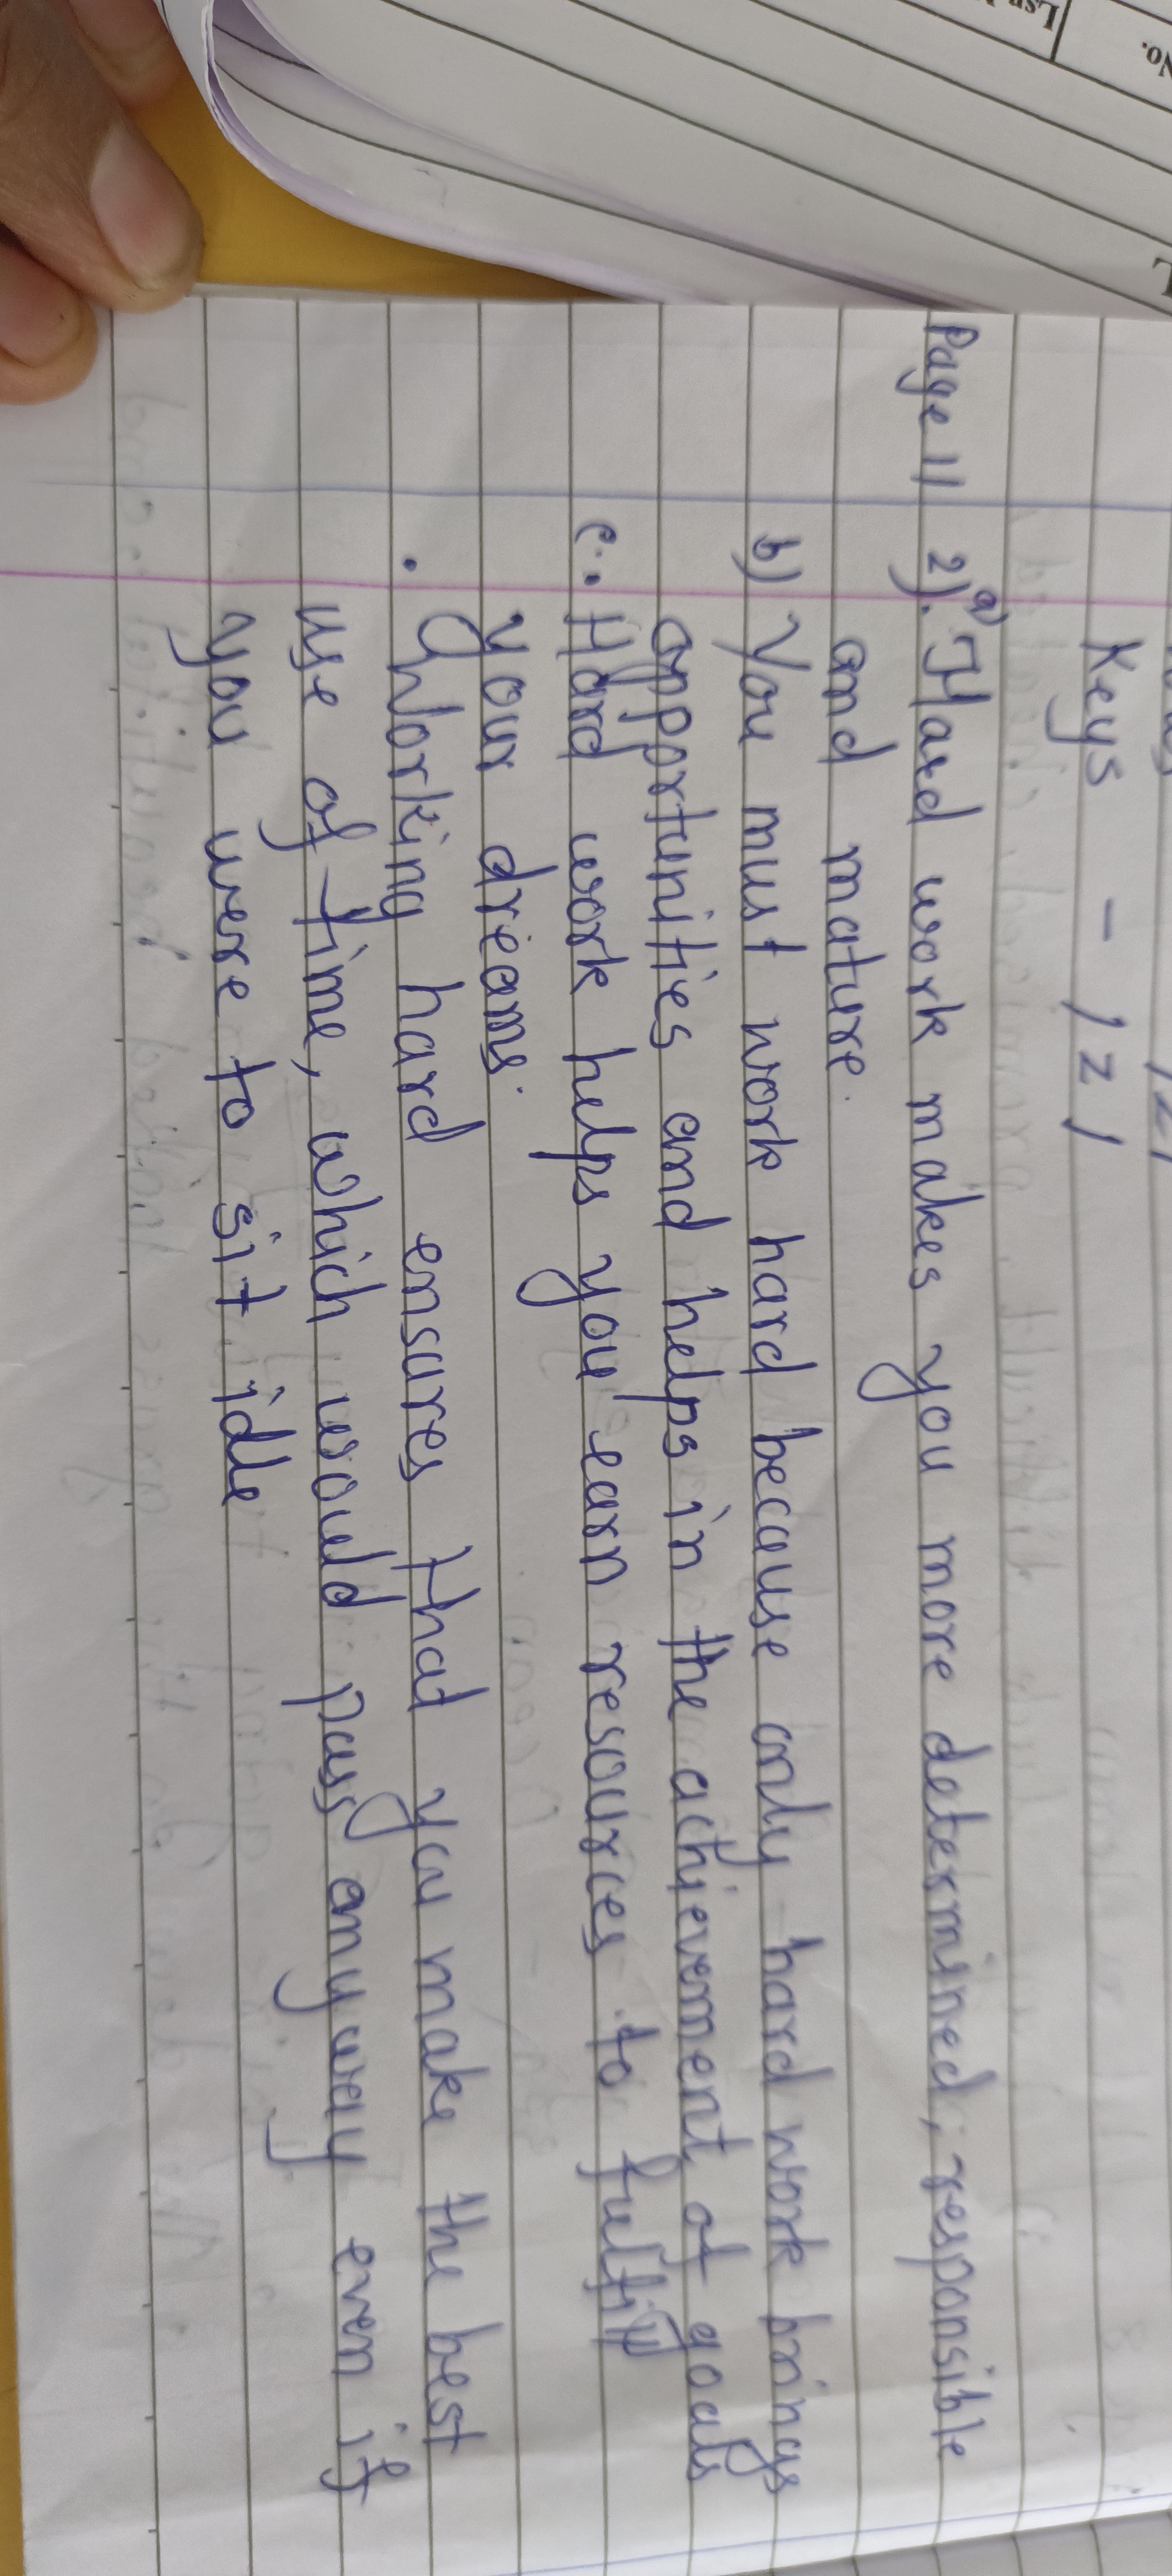 No.
Lsn
/z/
Keys - /z/
Page 11 2). a) Hard work makes you more determined, responsible
and mature.
b) You must work hard because only hard work brings
opportunities and helps in the achievement of goals
c. Hard work helps you earn resources to fulfill
your dreams.
. Working hard ensures that you make the best
use of time, which would pass anyway even if
you were to sit idle